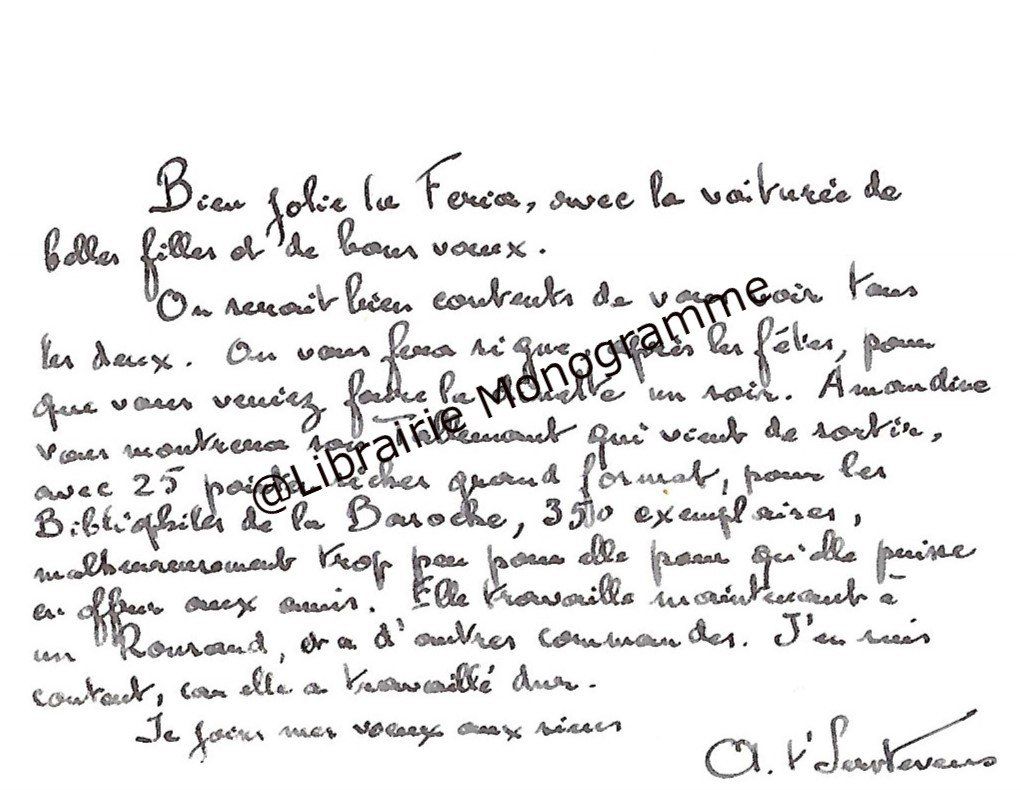 Bien jolie la Feria, avec la voiturée de
belles filles et de bons voeux.
On serait bien contents de vous voir tous
les deux. On vous fera signe après les fêtes, pour
que vous veniez faire la dînette un soir. Amandine
vous montrera son Tallemant qui vient de sortir,
avec 25 pointes sèches grand format, pour les
Bibliophiles de la Basoche, 350 exemplaires,
malheureusement trop peu pour elle pour qu'elle puisse
en offrir aux amis. Elle travaille maintenant à
un Ronsard, et a d'autres commandes. J'en suis
content, car elle a travaillé dur.
Je joins mes voeux aux siens
A. t'Serstevens
@Librairie Monogramme